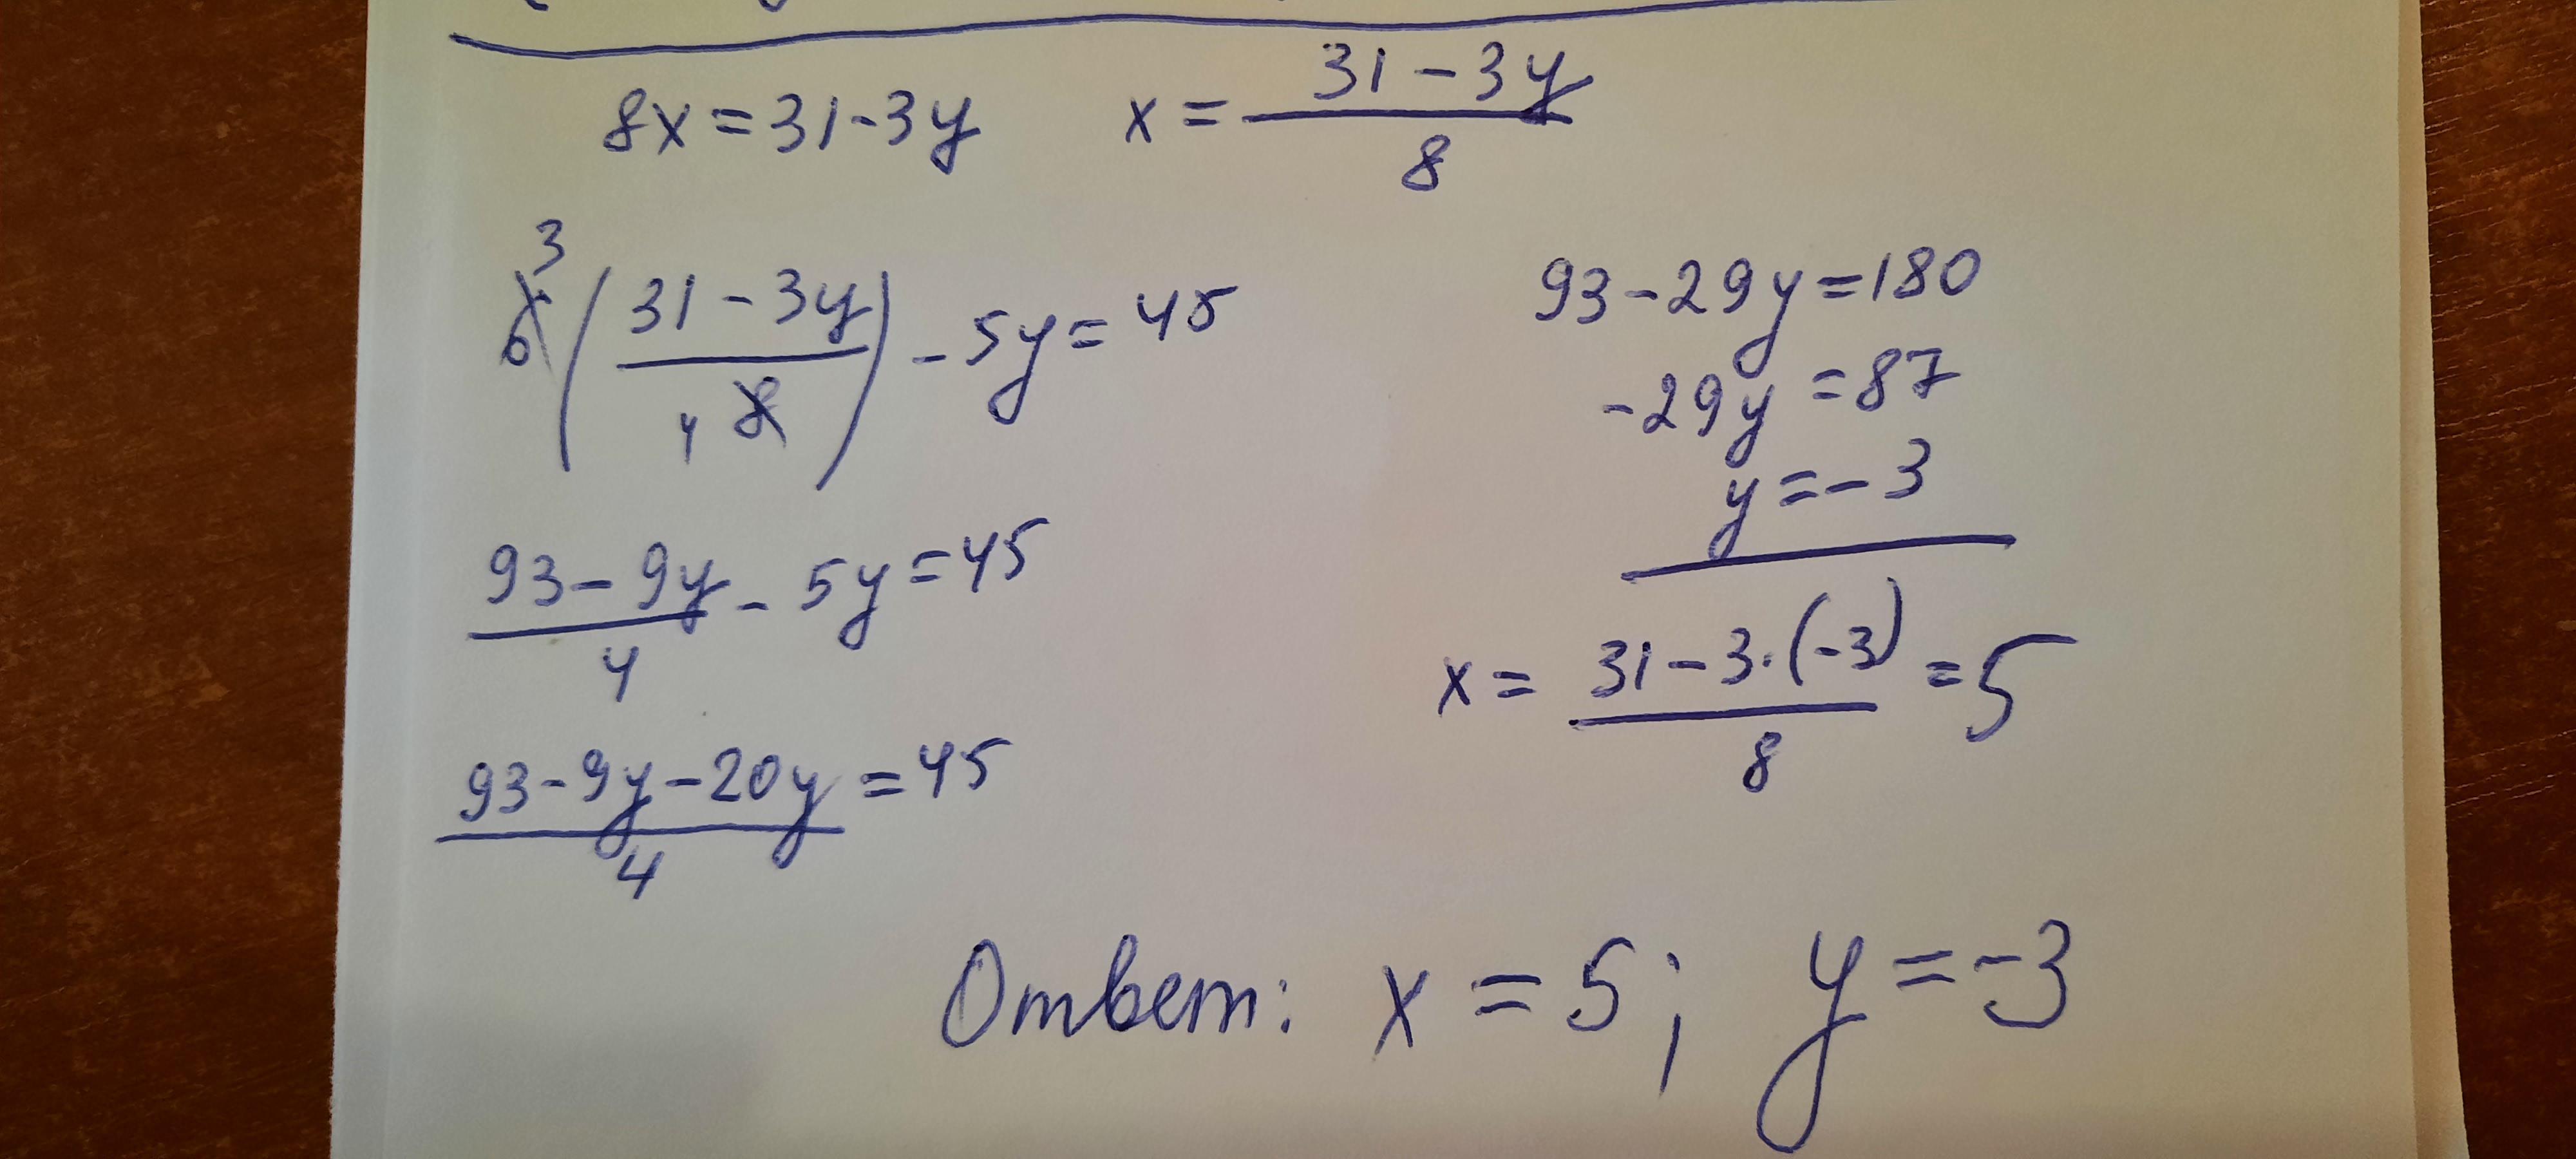 8x=31-3y x = (31-3y)/8
6 3 ((31-3y)/(4 8)) - 5y = 45
(93-9y)/4 - 5y = 45
(93-9y-20y)/4 = 45
93-29y=180
-29y=87
y=-3
x = (31-3·(-3))/8 = 5
Ответ: x = 5; y = -3